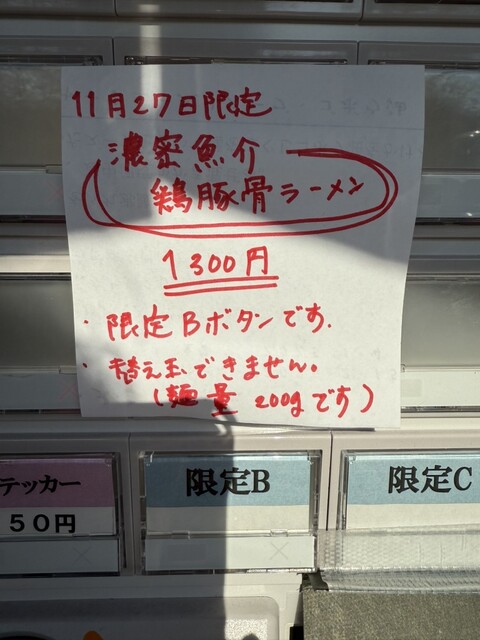 11月27日限定
濃密魚介
鶏豚骨ラーメン
1300円
・限定Bボタンです.
・替え玉できません。
(麺量 200gです)
テッカー
50円
限定B
限定C